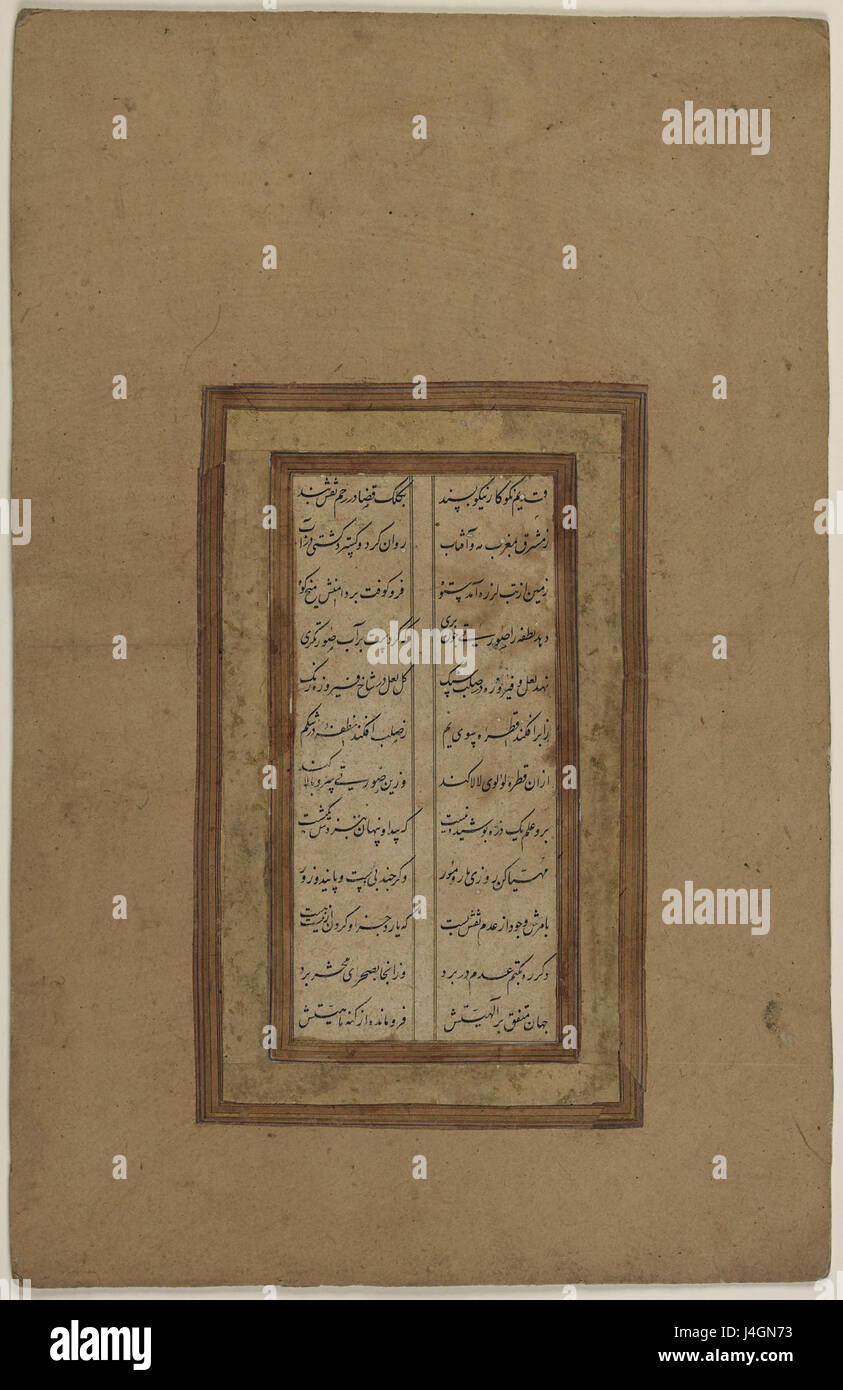 قدیم نکوکار نیکو پسند بکلک قضا در رحم نقش بند
ز مشرق بمغرب مه و آفتاب روان کرد و کسترد در آب
زمین از تب لرزه آمد ستوه فرو کوفت بر دامنش میخ کوه
دهد نطفه را صورتی چون پری که کردست بر آب صورتکری
نهد لعل و فیروزه در صلب سنک کل لعل در شاخ فیروزه رنک
ز ابر افکند قطره سوی یم ز صلب افکند نطفه در شکم
ازان قطره لولوی لالا کند وزین صورتی سرو بالا کند
برو علم یک ذره پوشیده نیست که پیدا و پنهان بنزدش یکیست
مهیا کن روزی مار و مور وکر چند بی دست و پایند و زور
بامرش وجود از عدم نقش بست که یارد جز او کردن از نیست هست
دکر ره بکتم عدم در برد وز انجا بصحرای محشر برد
جهان متفق بر آلهیتش فرومانده از کنه ماهیتش
alamy
alamy
alamy
alamy
Image ID: J4GN73
www.alamy.com